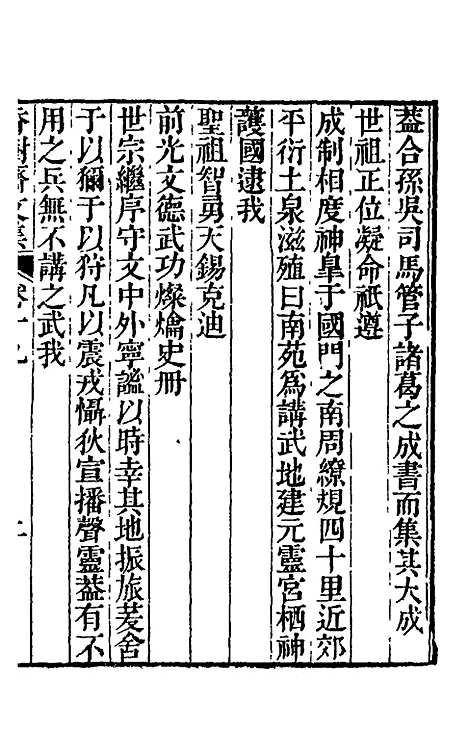 葢合孫吳司馬管子諸葛之成書而集其大成
世祖正位凝命祇遵
成制相度神臯于國門之南周繚規四十里近郊
平衍土泉滋殖曰南苑爲講武地建元靈宮栖神
護國逮我
聖祖智勇天錫克廸
前光文德武功燦爚史册
世宗繼序守文中外寧謐以時幸其地振旅茇舍
于以獮于以狩凡以震戎懾狄宣播聲靈葢有不
用之兵無不講之武我
香樹齋文集 卷十九 二